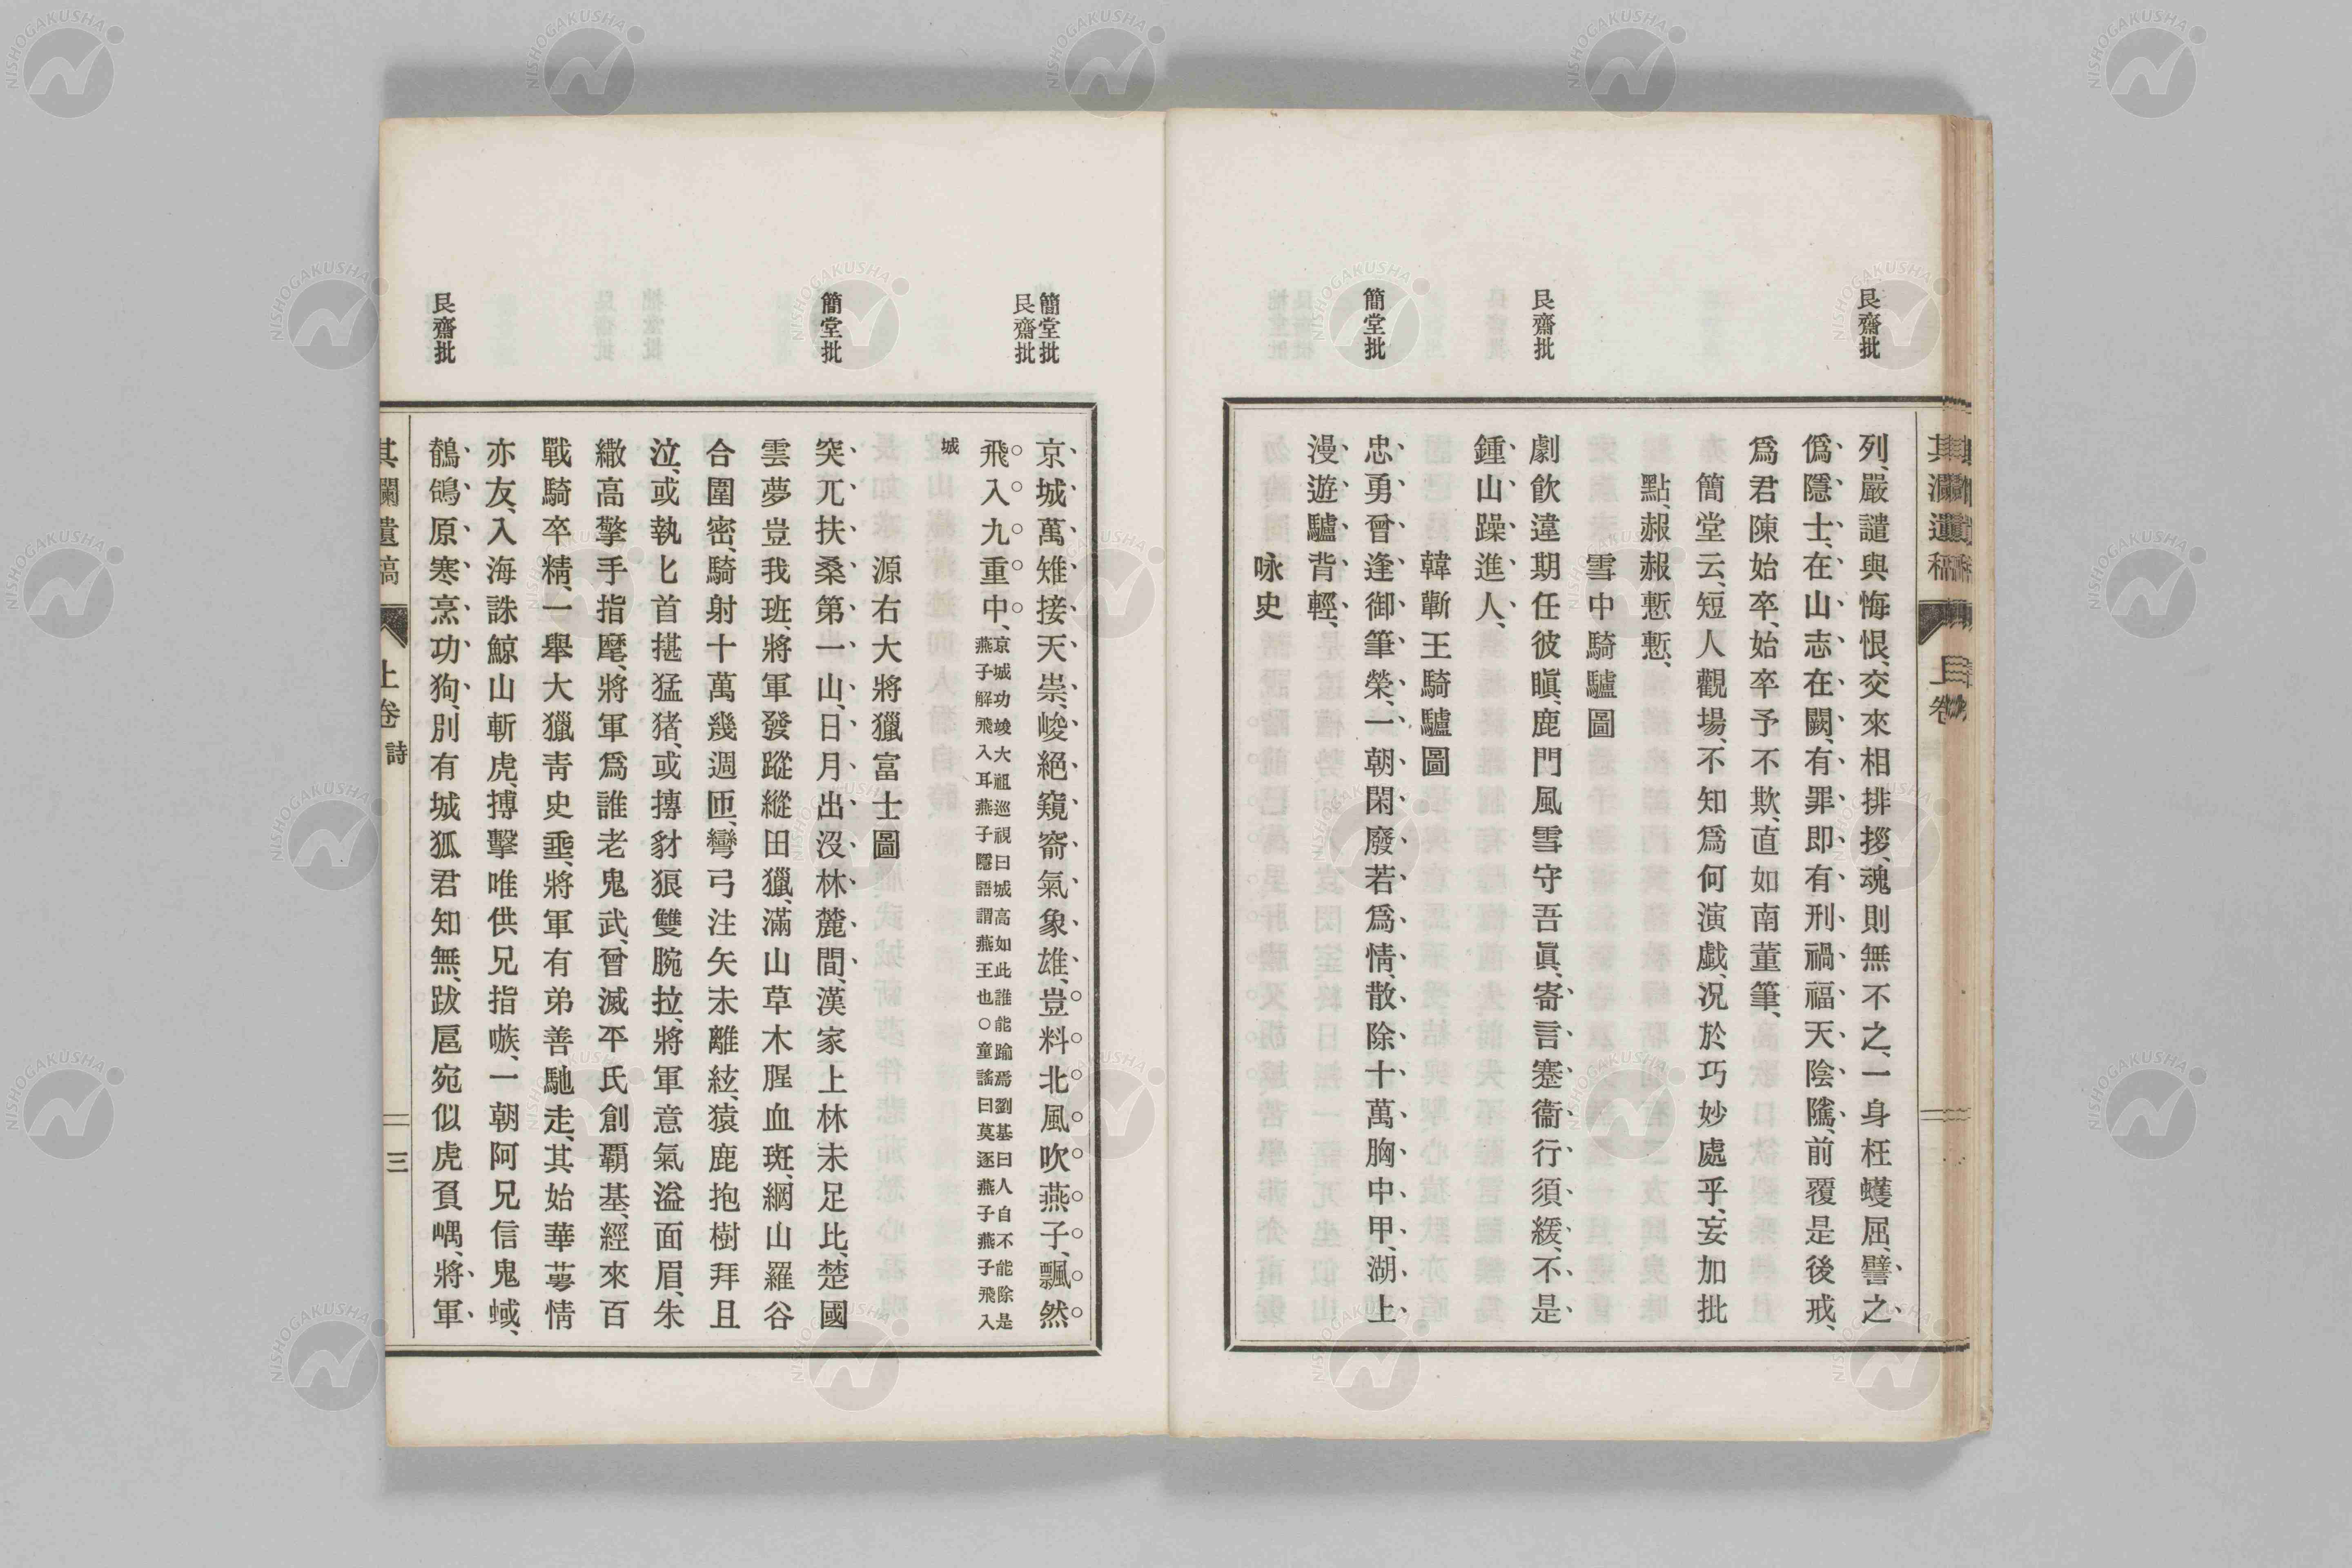 艮齋批
艮齋批
簡堂批
列、嚴譴與悔恨、交來相排拶、魂則無不之、一身枉蠖屈、譬之
僞隱士、在山志在闕、有罪即有刑、禍福天陰隲、前覆是後戒、
爲君陳始卒、始卒予不欺、直如南董筆、
簡堂云、短人觀場、不知爲何演戲、况於巧妙處乎、妄加批
點、赧赧慙慙、
雪中騎驢圖
劇飲違期任彼瞋、鹿門風雪守吾眞、寄言蹇衞行須緩、不是
鍾山躁進人、
韓蘄王騎驢圖
忠勇曾逢御筆榮、一朝閑廢若爲情、散除十萬胸中甲、湖上
漫遊驢背輕、
咏史
簡堂批
艮齋批
簡堂批
艮齋批
京城萬雉接天崇、峻絕窺窬氣象雄、豈料北風吹燕子、飄然
飛入九重中、
京城功竣大祖巡視曰城高如此誰能踰焉劉基曰人自不能除是
燕子解飛入耳燕子隱語謂燕王也○童謠曰莫逐燕子燕子飛入
城
源右大將獵富士圖
突兀扶桑第一山、日月出沒林麓間、漢家上林未足比、楚國
雲夢豈我班、將軍發蹤縱田獵、滿山草木腥血斑、網山羅谷
合圍密、騎射十萬幾週匝、彎弓注矢未離絃、猿鹿抱樹拜且
泣、或執匕首揕猛猪、或摶豺狼雙腕拉、將軍意氣溢面眉、朱
繖高擎手指麾、將軍爲誰老鬼武、曾滅平氏創覇基、經來百
戰騎卒精、一舉大獵靑史垂、將軍有弟善馳走、其始華萼情
亦友、入海誅鯨山斬虎、搏擊唯供兄指嗾、一朝阿兄信鬼蜮、
鶺鴒原寒烹功狗、別有城狐君知無、跋扈宛似虎負嵎、將軍
其爛遺稿 上卷 詩 三